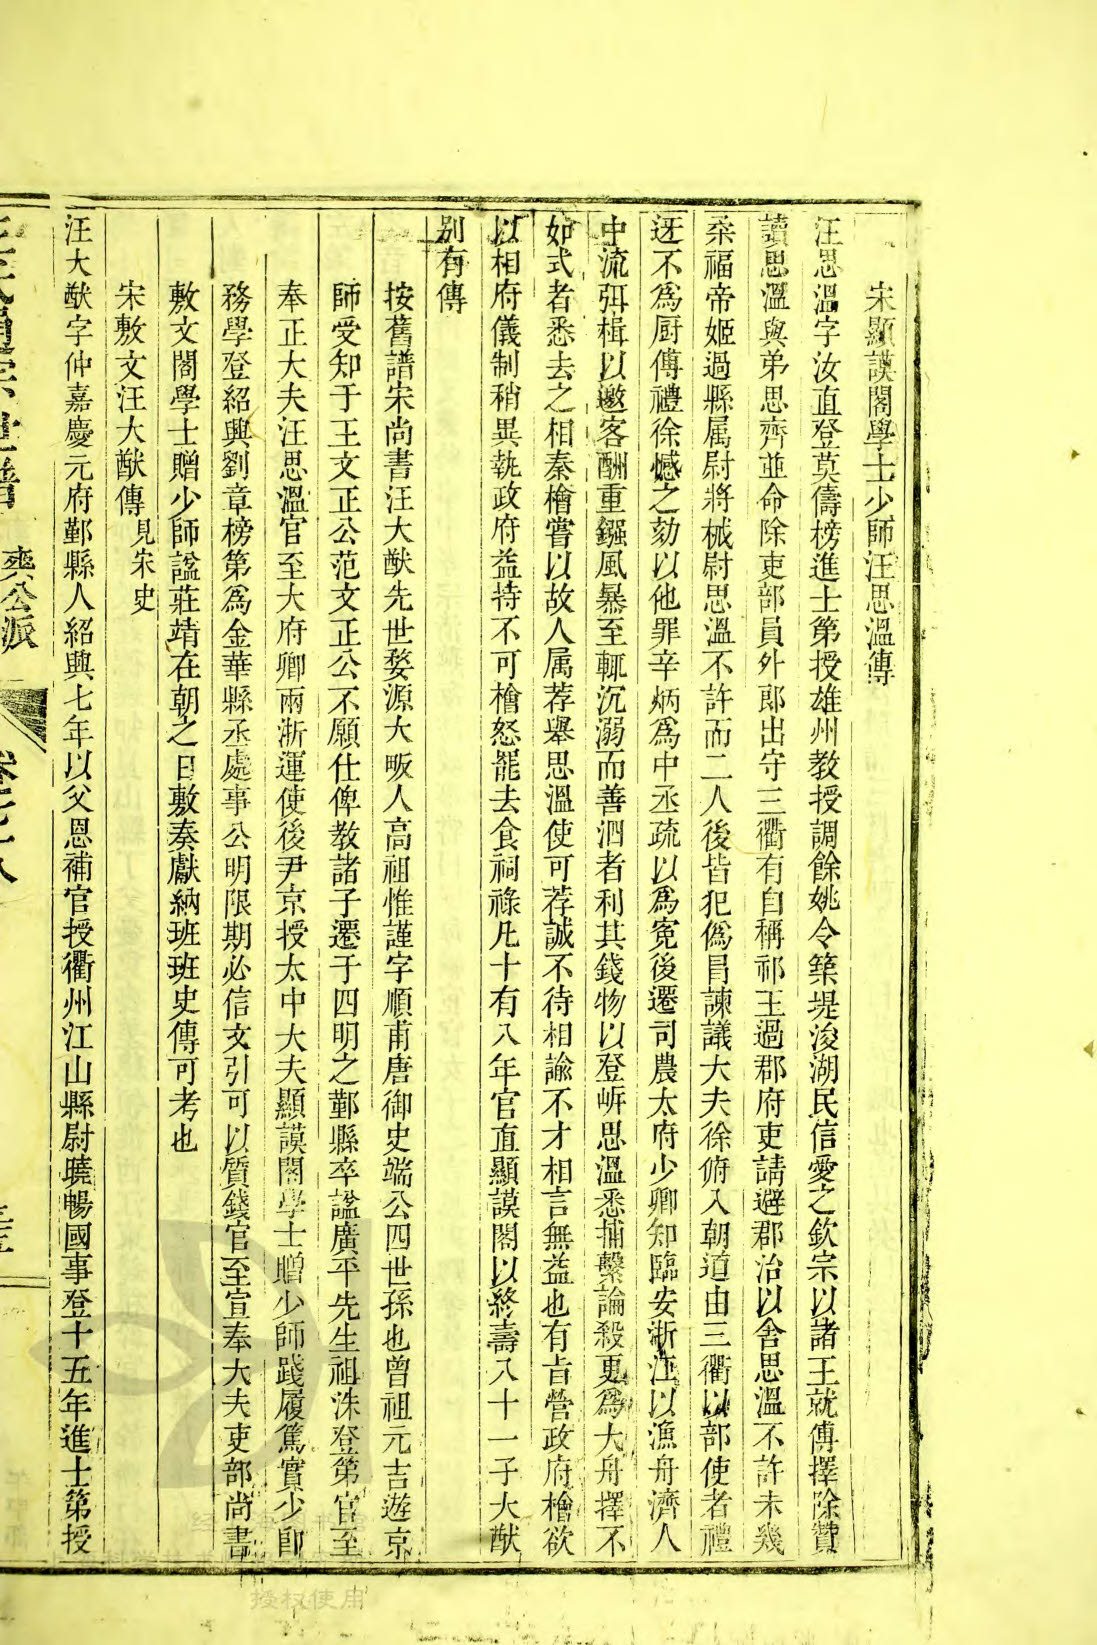 宋顯謨閣學士少師汪思溫傳
汪思溫字汝直登莫儔榜進士第授雄州教授調餘姚令築堤浚湖民信愛之欽宗以諸王就傅擇除贊
讀思溫與弟思齊並命除吏部員外郎出守三衢有自稱祁王過郡府吏請避郡治以舍思溫不許未幾
柔福帝姬過縣属尉將械尉思溫不許而二人後皆犯僞冒諫議大夫徐俯入朝道由三衢以部使者禮
迓不爲厨傳禮徐憾之劾以他罪辛炳爲中丞疏以爲寃後遷司農太府少卿知臨安浙江以漁舟濟人
中流弭楫以邀客酬重鏹風暴至輒沉溺而善泗者利其錢物以登岍思溫悉捕繫論殺更爲大舟擇不
如式者悉去之相秦檜嘗以故人属荐舉思溫使可荐誠不待相諭不才相言無益也有旨營政府檜欲
以相府儀制稍異執政府益持不可檜怒罷去食祠祿凡十有八年官直顯謨閣以終壽八十一子大猷
别有傳
按舊譜宋尚書汪大猷先世婺源大畈人高祖惟謹字順甫唐御史端公四世孫也曾祖元吉遊京
師受知于王文正公范文正公不願仕俾教諸子遷于四明之鄞縣卒諡廣平先生祖洙登第官至
奉正大夫汪思溫官至大府卿兩浙運使後尹京授太中大夫顯謨閣學士贈少師踐履篤實少卽
務學登紹興劉章榜第爲金華縣丞處事公明限期必信文引可以質錢官至宣奉大夫吏部尚書
敷文閣學士贈少師諡莊靖在朝之日敷奏獻納班班史傳可考也
宋敷文汪大猷傳 見宋史
汪大猷字仲嘉慶元府鄞縣人紹興七年以父恩補官授衢州江山縣尉曉暢國事登十五年進士第授
爽公派
授权使用